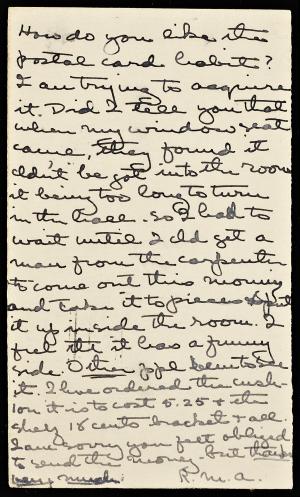 How do you like the
postal card habit?
I am trying to acquire
it. Did I tell you that
when my window seat
came, they found it
cldn't be got into the room
it being too long to turn
in the hall. So I had to
wait until I cld get a
man from the carpenter
to come out this morning
and take it to pieces & put
it up inside the room. I
feel tht it has a funny
side. Other ppl seem to see
it. I have ordered the cush-
ion it is to cost 5.25 + the
shelf 18 cents bracket & all.
I am sorry you feel obliged
to send the money but thank
very much. R. M. A.